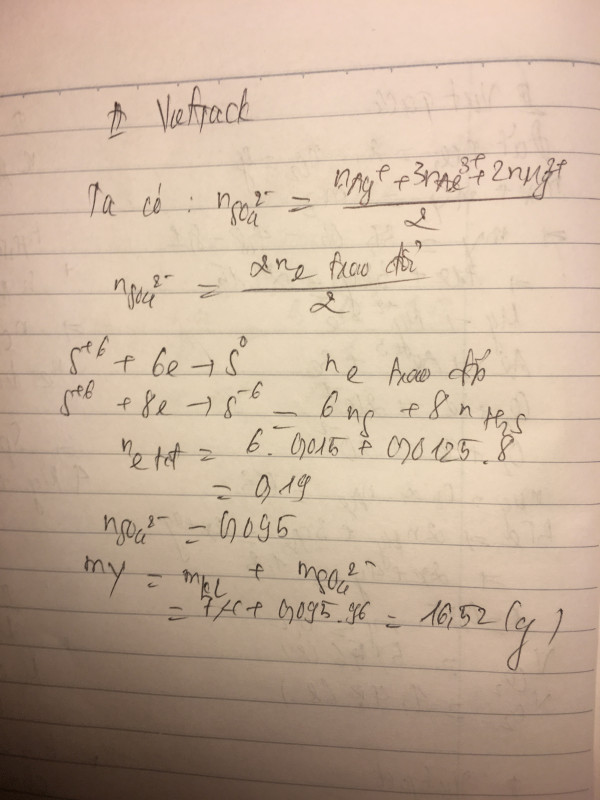 Vietjack
Ta có : nSO₄²⁻ = (nAg⁺ + 3nAl³⁺ + 2nMg²⁺) / 2
nSO₄²⁻ = ne trao đổi / 2
S⁺⁶ + 6e → S⁰ ne trao đổi
S⁺⁶ + 8e → S⁻⁶ = 6 nS + 8 nH₂S
ne = 6. 0,015 + 0,0125 . 8
= 0,19
nSO₄²⁻ = 0,095
mY = mKL + mSO₄²⁻
= + 0,095.96 = 16,52 (g)